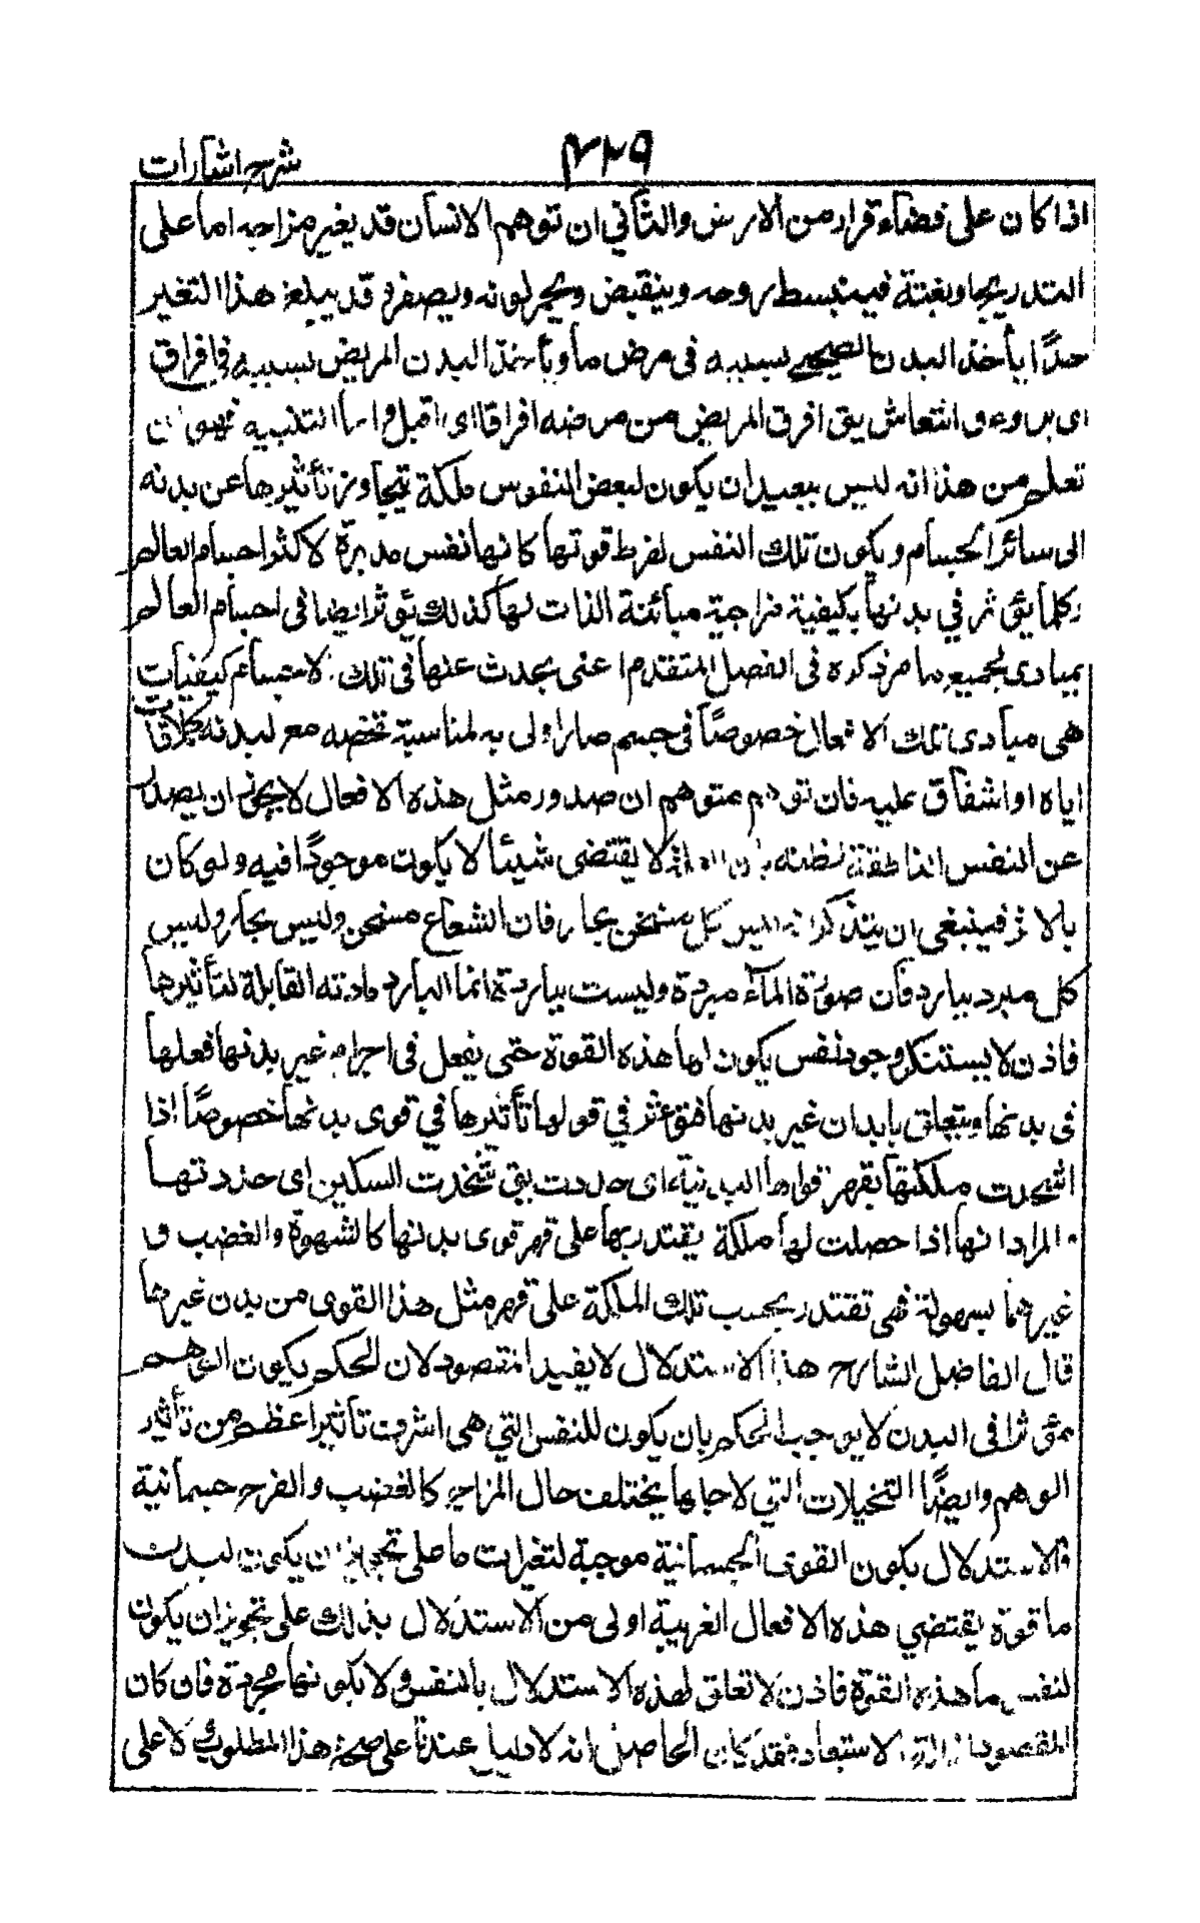 ٣٢٩
شرح اشارات
اذا كان على فضاء و قرار من الارض والثاني ان توهم الانسان قد يغير مزاجه اما على
التدريج او بغتة فيبسط روحه وينقبض ويحمر لونه ويصفر و قد يبلغ هذا التغير
حدًا يأخذ البدن الصحيح بسببه في مرض ما ويأخذ البدن المريض بسببه في افراق
اى بروء و انتعاش يق افرق المريض من مرضه افراقا اى اقبل و اما التنبيه فهو ان
تعلم من هذا انه ليس ببعيد ان يكون لبعض النفوس ملكة تتجاوز تأثيرها عن بدنه
الى سائر الاجسام و يكون تلك النفس لفرط قوتها كانها نفس مدبرة لاكثر اجسام العالم
وكما يؤثر في بدنها بكيفية مزاجية مبائنة الذات لها كذلك يؤثر ايضا فى اجسام العالم
بمبادى لجميع ما مر ذكره فى الفصل المتقدم اعنى يحدث عنها في تلك الاجسام كيفيات
هى مبادى تلك الافعال خصوصًا في جسم صار اولى به لمناسبة تخصه مع لبدنه كملاقات
اياه او اشفاق عليه فان توهم متوهم ان صدور مثل هذه الافعال لا يجوز ان يصدر
عن النفس الناطقة لظنه بان العلة لا يقتضى شيئا لا يكون موجودًا فيه ولو كان
بالاثر فينبغى ان يتذكر انه ليس كل مسخن بحار فان الشعاع مسخن وليس بحار وليس
كل مبرد ببارد فان صورة المآء مبردة وليست بباردة انما البارد مادته القابلة لتأثيرها
فاذن لا يستنكر وجود نفس يكون لها هذه القوة حتى يفعل فى اجرام غير بدنها فعلها
فى بدنها ويتعلق بابدان غير بدنها فتؤثر في قولها تأثيرها في قوى بدنها خصوصًا اذا
اشحذت ملكتها بقهر قواها البدنية اى حددت يق شحذت السكين اى حددتها
و المراد انها اذا حصلت لها ملكة يقتدر بها على قهر قوى بدنها كالشهوة والغضب و
غيرهما بسهولة فهى تقتدر بحسب تلك الملكة على قهر مثل هذا القوى من بدن غيرها
قال الفاضل الشارح هذا الاستدلال لا يفيد المقصود لان الحكم بكون الوهم
مؤثرا فى البدن لا يوجب الحكم بان يكون للنفس التي هى اشرف تأثيرا اعظم من تأثير
الوهم وايضًا التخيلات التي لاجلها يختلف حال المزاج كالغضب و الفرح جسمانية
فالاستدلال بكون القوى الجسمانية موجبة لتغيرات ما على تجويز ان يكون لبدن
ما قوة يقتضي هذه الافعال الغريبة اولى من الاستدلال بذلك على تجويز ان يكون
لنفس ما هذه القوة فاذن لا تعلق لهذه الاستدلال بالنفس و لا بكونها مجردة فان كان
المقصود ازالة الاستبعاد فقد كان الحاصل انه لا دليل عندنا على صحة هذا المطلوب لا على